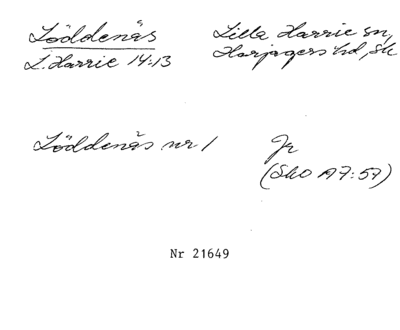 Löddenäs
L. Harrie 14:13
Lilla Harrie sn,
Harjagers hd, Sk
Löddenäs nr 1
Jr
(SkO A7:57)
Nr 21649